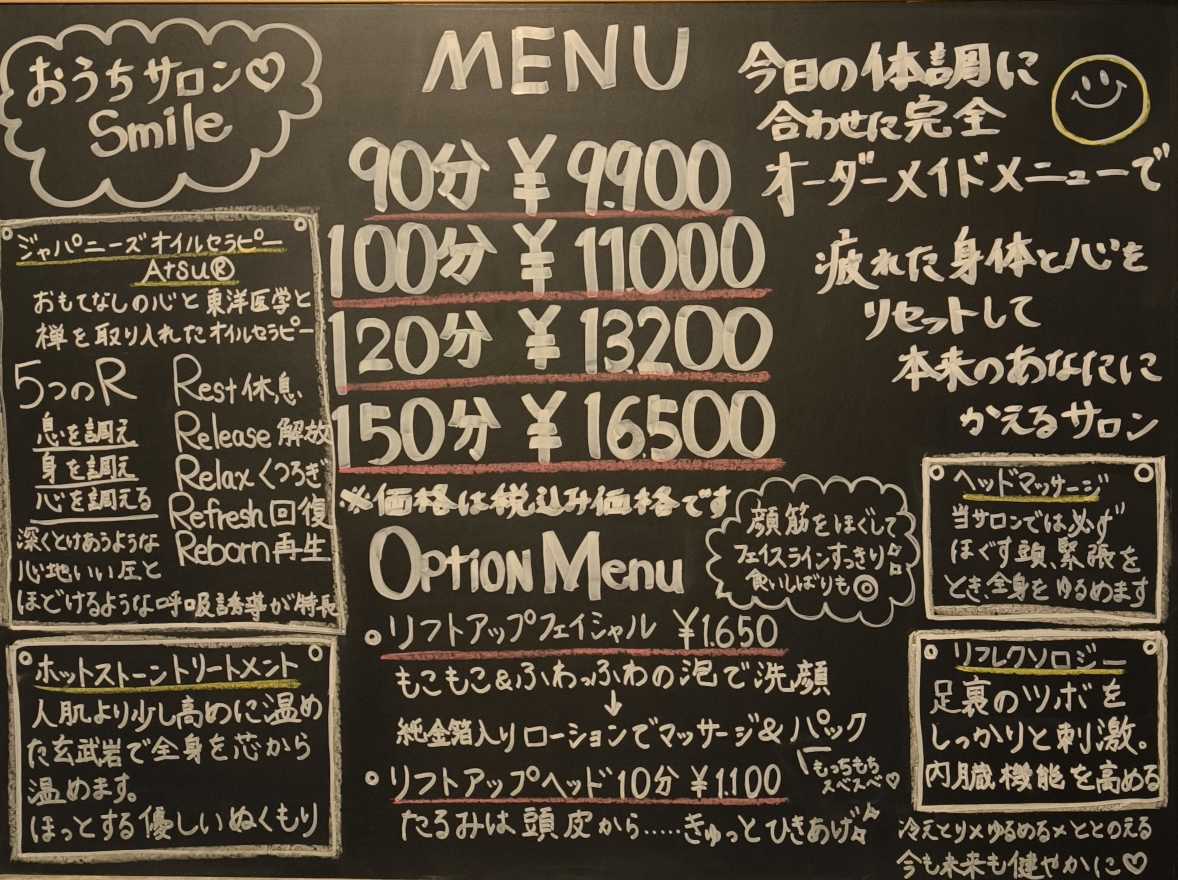 おうちサロン♡
Smile
MENU
90分 ¥9.900
100分 ¥11000
120分 ¥13.200
150分 ¥16.500
※価格は税込み価格です
今日の体調に
合わせた完全
オーダーメイドメニューで
疲れた身体と心を
リセットして
本来のあなたに
かえるサロン
ジャパニーズオイルセラピー
Atsu®
おもてなしの心と東洋医学と
禅を取り入れたオイルセラピー
5つのR
息を調え
身を調え
心を調える
Rest 休息
Release 解放
Relax くつろぎ
Refresh 回復
Reborn 再生
深くとけあうような
心地いい圧と
ほどけるような呼吸誘導が特長
ホットストーントリートメント
人肌より少し高めに温め
た玄武岩で全身を芯から
温めます。
ほっとする優しいぬくもり
Option Menu
顔筋をほぐして
フェイスラインすっきり☆
食いしばりも◎
○リフトアップフェイシャル ¥1.650
もこもこ&ふわっふわの泡で洗顔
↓
純金箔入りローションでマッサージ&パック
もっちもち
スベスベ♡
○リフトアップヘッド10分 ¥1.100
たるみは頭皮から.....きゅっとひきあげ☆
ヘッドマッサージ
当サロンでは必ず
ほぐす頭、緊張を
とき、全身をゆるめます
リフレクソロジー
足裏のツボを
しっかりと刺激。
内臓機能を高める
冷えとり×ゆるめる×ととのえる
今も未来も健やかに♡